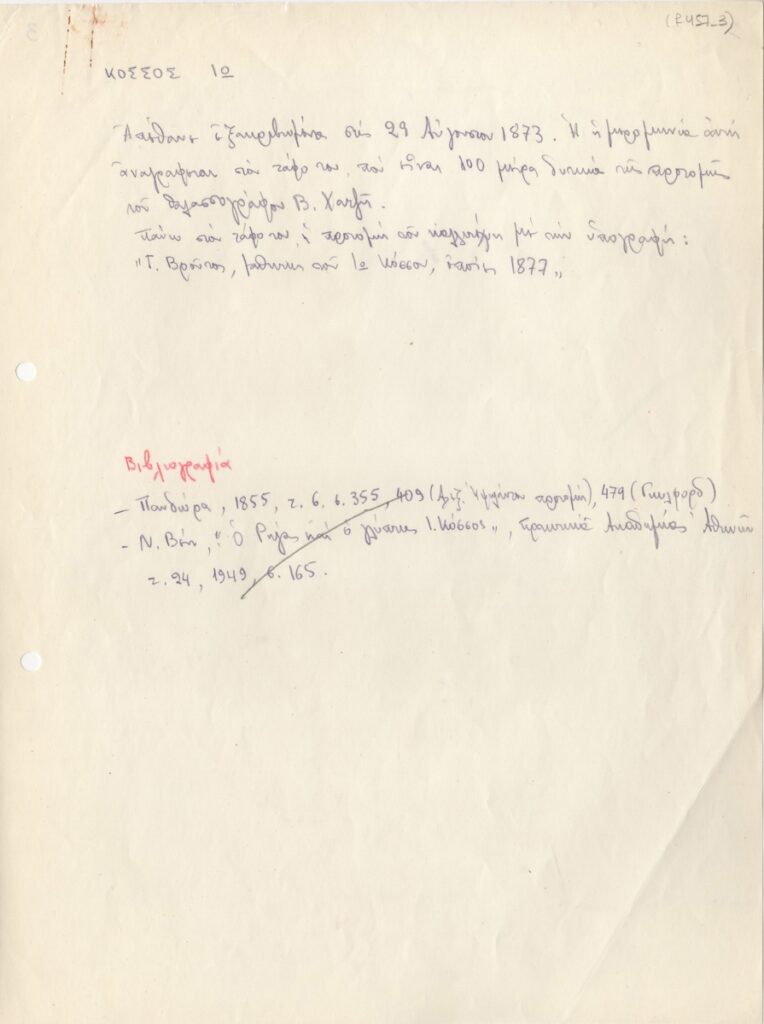 (Σ457_3)
ΚΟΣΣΟΣ ΙΩ
Ἀπέθανε ἐξακριβωμένα στίς 29 Αὐγούστου 1873. Ἡ ἡμερομηνία αὐτή
ἀναγράφεται στόν τάφο του, πού εἶναι 100 μέτρα δυτικά τῆς προτομῆς
τοῦ θαλασσογράφου Β. Χατζῆ.
Πάνω στόν τάφο του ἡ προτομή τοῦ καλλιτέχνη μέ τήν ὑπογραφή:
"Γ. Βροῦτος, μαθητής τοῦ Ἰω Κόσσου, ἐποίει 1877"
Βιβλιογραφία
- Πανδώρα, 1855, τ. 6. σ. 355, 409 (Ἀλεξ. Ὑψηλάντου προτομή), 479 (Γκυλφορδ)
- Ν. Βέη, "Ὁ Ρήγας καί ὁ γλύπτης Ι. Κόσσος", Πρακτικά Ἀκαδημίας Ἀθηνῶν
τ. 24, 1949, σ. 165.